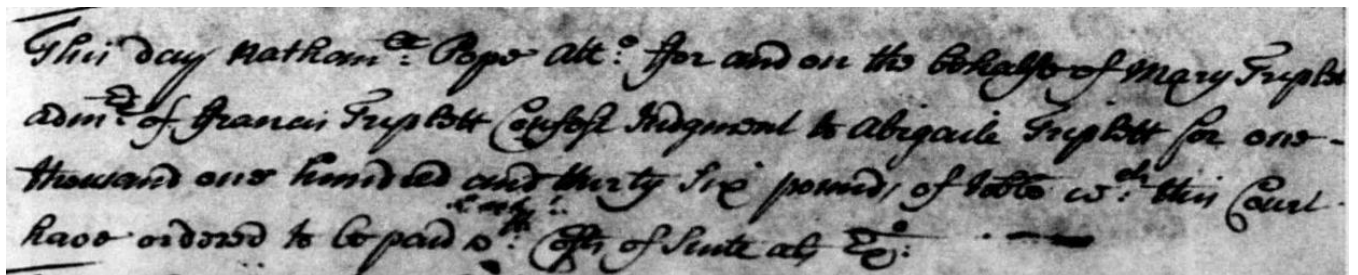 This day Nathan:ll Pope Att:o ffor and on the behalfe of Mary Triplett
adm:rx of ffrancis Triplett Confest Judgment to Abigaile Triplett for one
thousand one hundred and thirty Six pounds of tobb:o w:ch this Court
have ordered to be paid w:th Costs of Suite als Ex:o